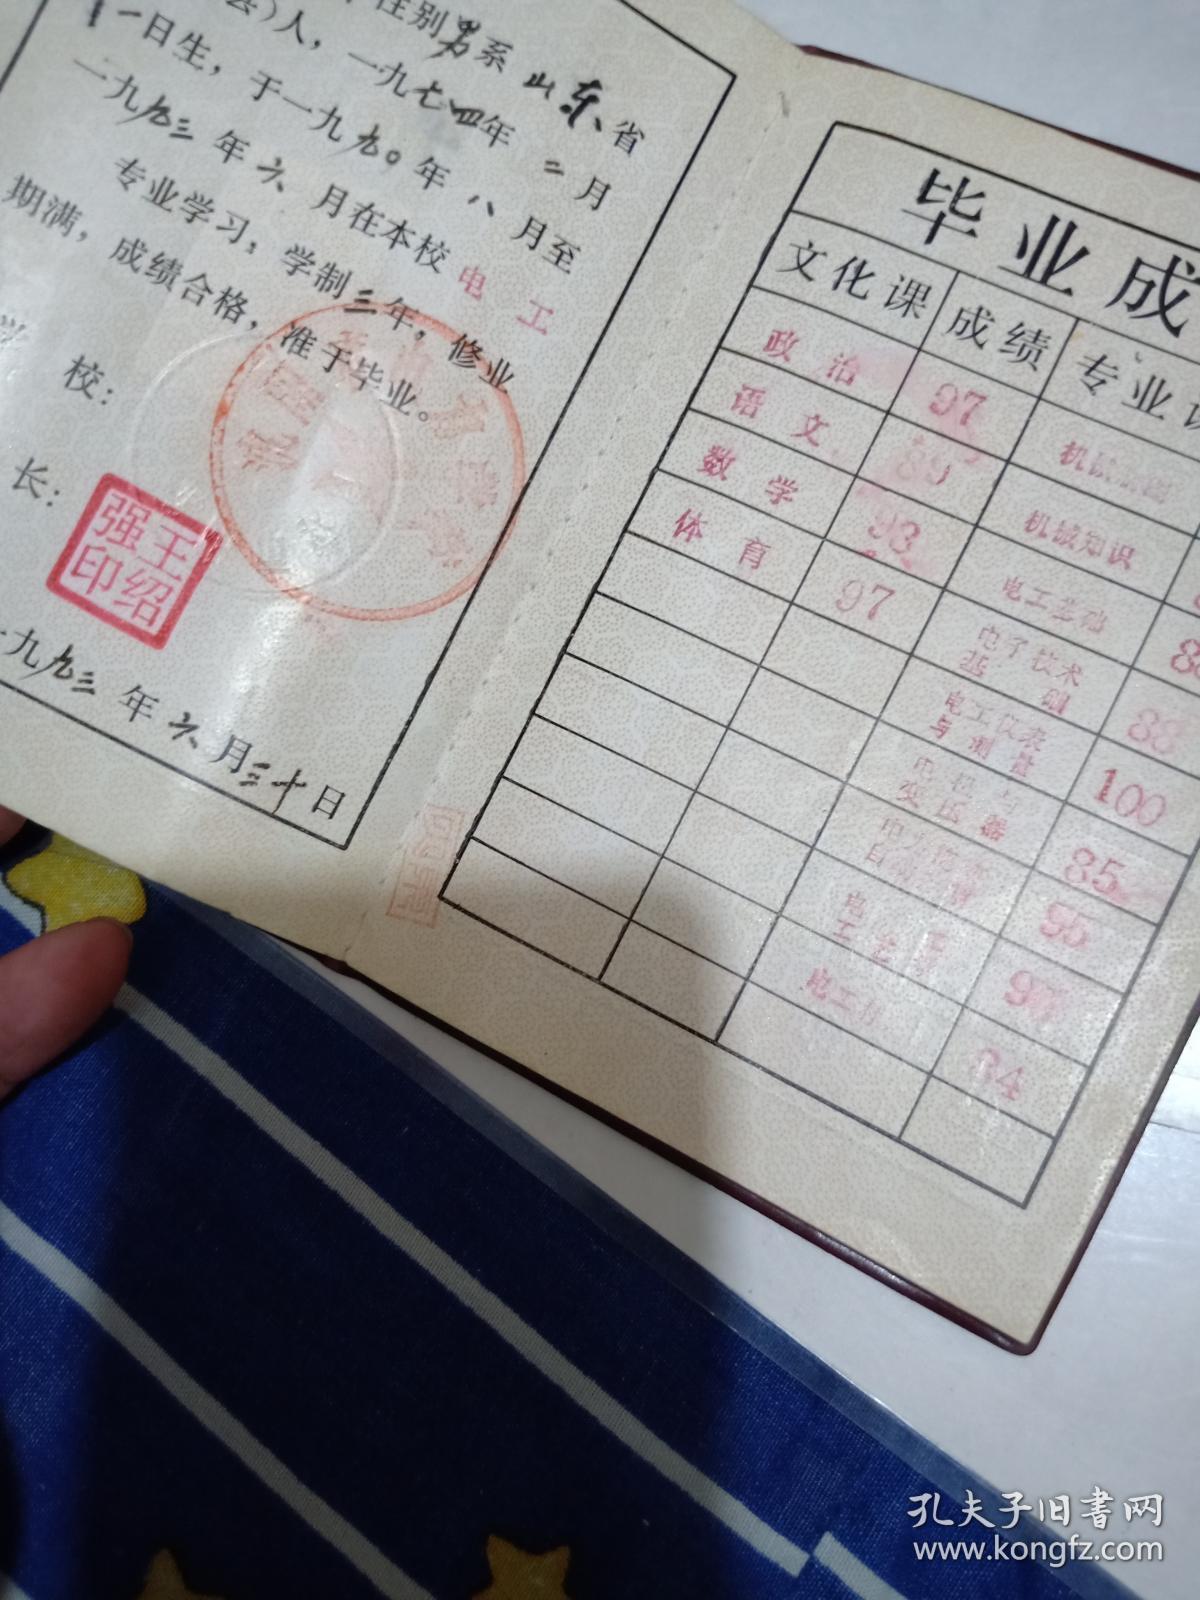 性别男系山东省
县)人，一九七四年二月
十一日生，于一九九〇年八月至
一九九三年六月在本校电工
专业学习，学制三年，修业
期满，成绩合格，准于毕业。
学
校：
长：
强王
印绍
一九九三年六月三十日
毕业成
文化课 成绩 专业课
政治 97
语文 89 机械知识
数学 93 电工基础
体育 97 电子技术基础 88
电工仪表与测量 100
电机与变压器 85
95
电工工艺学
电工 84
孔夫子旧书网
www.kongfz.com